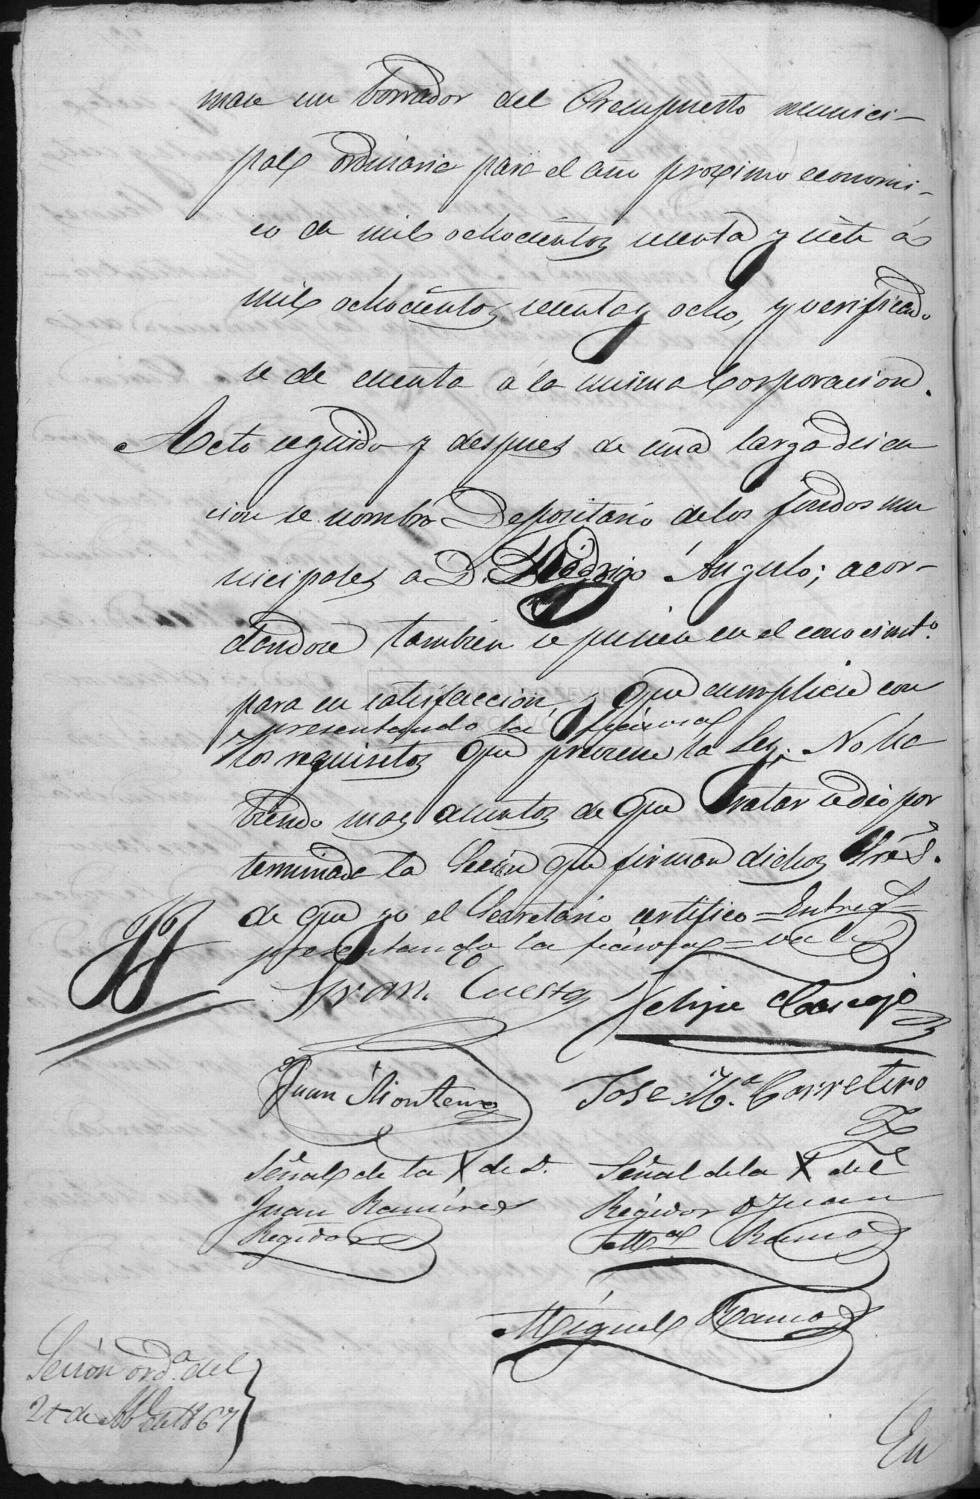 mase un borrador del Presupuesto munici-
pal ordinario para el año proximo economi-
co de mil ochocientos secenta y siete á
mil ochocientos secenta y ocho, y verificado
se de cuenta á la misma Corporacion.
Acto seguido y despues de una larga discu
cion se nombró Depositario de los fondos mu
nicipales a D. Rodrigo Ángulo; acor-
dandose tambien se pusiese en el conocimto.
para su satisfaccion, y que cumpliese con
presentando la fianza
los requisitos que previene la Ley. No ha
biendo mas asuntos de que tratar se dió por
terminada la Sesion que firman dichos Sres.
de que yo el Secretario certifico = Entreql =
presentando la fianza = vale
Fran. Cuesta Felipe Cornejo
Juan Montero Jose Ma. Carretero
Señal de la X de D. Señal de la X del
Juan Ramirez Regidor D Juan
Regidor Ml Ramos
Miguel Ramos
Sesión orda. del
de 1867
En